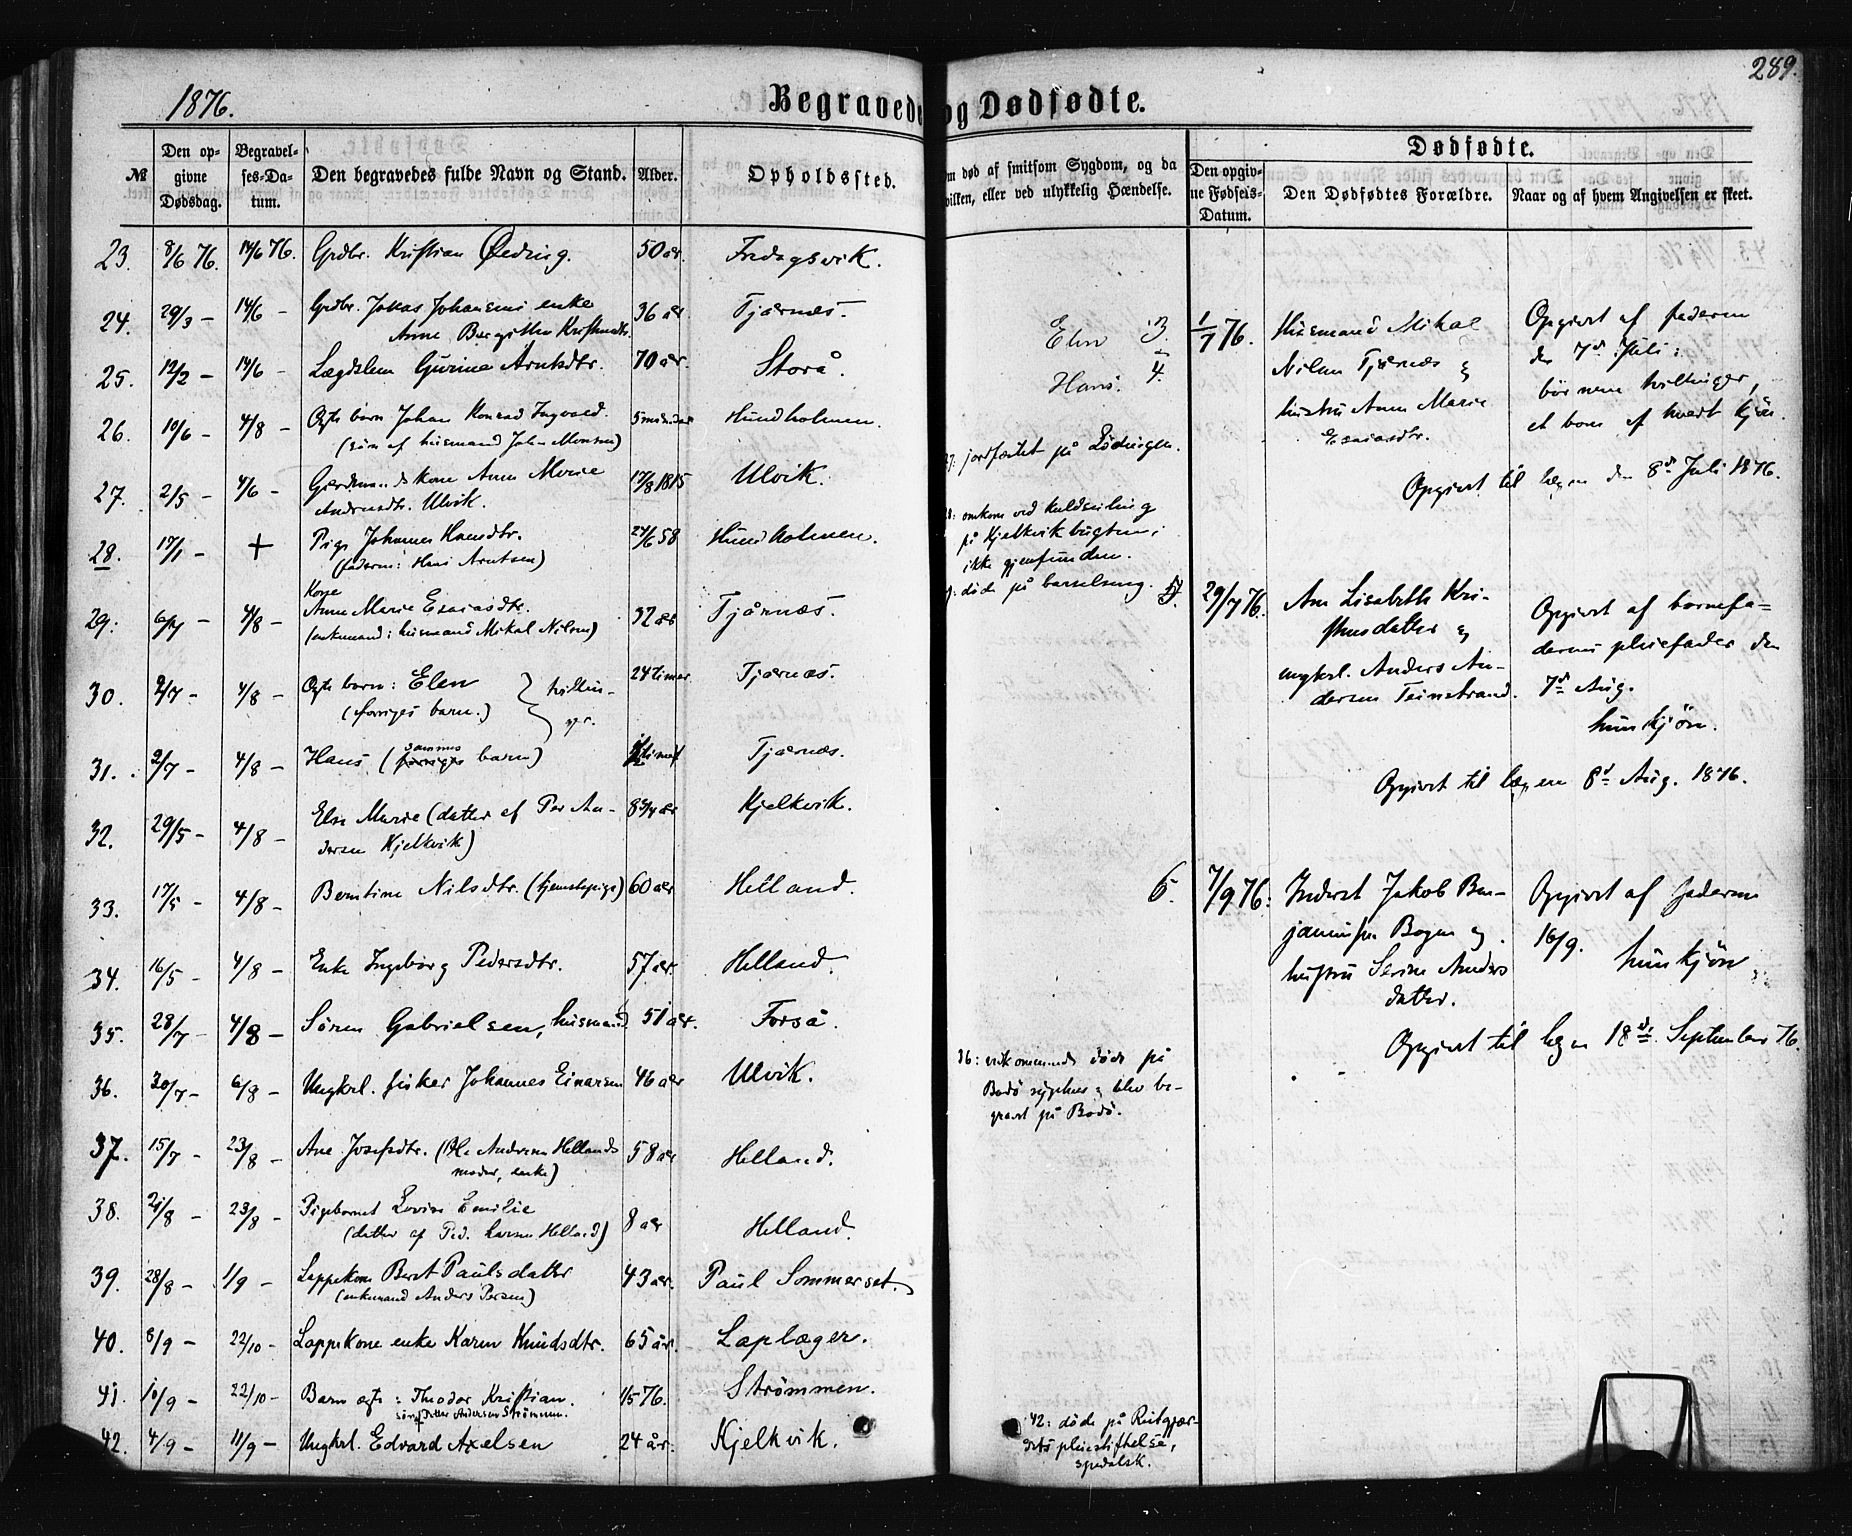 1876.
Begravede og Dødfødte.
289.
№
Den opgivne Dødsdag.
Begravelses-Datum.
Den begravedes fulde Navn og Stand.
Alder.
Opholdssted.
om død af smitsom Sygdom, og da
hvilken, eller ved ulykkelig Hændelse.
Dødfødte.
Den opgivne Fødsels-Datum.
Den Dødfødtes Forældre.
Naar og af hvem Angivelsen er skeet.
23. 8/6 76. 14/6 76. Grdbr. Kristian Ødring. 50 år. Fredagsvik.
24. 29/3 – 14/6 – Grdbr. Jonas Johansens enke
Anne Bergitha 36 år Tjærnæs.
25. 12/2 – 14/6 – Lægdslem Gurine Arntsdtr. 70 år. Storå.
26. 10/6 – 4/8 – Ogte barn Johan Konrad Ingvald. 5 måneder Hundholmen.
(søn af husmand Johan Monsen)
27. 2/5 – 4/6 – Gaardmands kone Anne Marie 17/8 1815 Ulvik.
Andreasdtr. Ulvik.
28. 17/1 – + Pige Johanna Hansdtr. 24/6 58 Hundholmen.
(faderen: Hans Arntsen)
29. 6/7 – 4/8 – Kone
Anne Marie Esaiasdtr. 32 år Tjårnæs.
(enkemand: husmand Mikal Nilsen)
30. 2/7 – 4/8 – Ogte barn: Elen 24 timer Tjærnæs.
(forriges barn.) tvillinger.
31. 2/7 – 4/8 – Hans (sammes barn) Tjærnæs.
32. 29/5 – 4/8 – Else Marie (datter af Per Andersen Kjelkvik) 8 3/4 år Kjelkvik.
33. 17/5 – 4/8 – Berntine Nilsdtr. (tjenestepige) 60 år Helland.
34. 16/5 – 4/8 – Enke Ingeborg Pedersdtr. 57 år. Helland.
35. 28/7 – 4/8 – Søren Gabrielsen, husmand 51 år. Forså.
36. 30/7 – 6/8 – Ungkrl. fisker Johannes Einarsen 46 år Ulvik.
37. 15/7 – 23/8 – Ane Josefsdtr. (Ole Andersen Hellands 58 år Helland.
moder, enke)
38. 21/8 – 23/8 – Pigebarnet Lovise Emilie 8 år Helland.
(datter af Ped. Larsen Helland)
39. 28/8 – 1/9 – Lappekone Beret Paulsdatter 43 år. Paul Sommerset.
(enkemand Anders Persen)
40. 8/9 – 22/10 – Lappekone enke Karen Knudsdtr. 65 år. Laplæger.
41. 10/9 – 22/10 – Barn ægte: Theodor Kristian. 1/5 76. Strømmen.
søn af Petter Andersen Strømmen.
42. 4/9 – 11/9 – Ungkrl. Edvard Axelsen 24 år. Kjelkvik.
Elen 3.
Hans. 4.
27: jordfæstet på Lødingen.
28: omkom ved kuldseiling
på Kjelkvikbugten;
ikke gjenfunden.
døde på barselseng.
36: vedkommende døde på
Bodø sygehus & blev begravet på Bodø.
42: døde på Reitgjærdets pleiestiftelse,
spedalsk.
1/7 76. Husmand Mikal
Nilsen Tjærnæs &
hustru Anne Marie
Esaiasdtr.
Opgivet af faderen
den 7de Juli:
børnene tvillinger,
et barn af hvert kjøn.
Opgivet til lægen den 8de Juli 1876.
5. 29/7 76. Ane Lisabeth Kristensdatter &
ungkrl. Anders Andersen Teinstrand.
Opgivet af barnefaderens pleiefader den
7de Aug.
hunkjøn.
Opgivet til lægen 8de Aug. 1876.
6. 7/9 76: Inderst Jakob Benjaminsen Bogen &
hustru Serine Andersdatter.
Opgivet af faderen
16/9. hunkjøn
Opgivet til lægen 18de September 76.